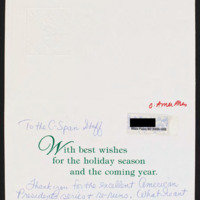 To the C-Span Staff
With best wishes
for the holiday season
and the coming year.
Thank you for the excellent American
Presidents series & re-runs. What